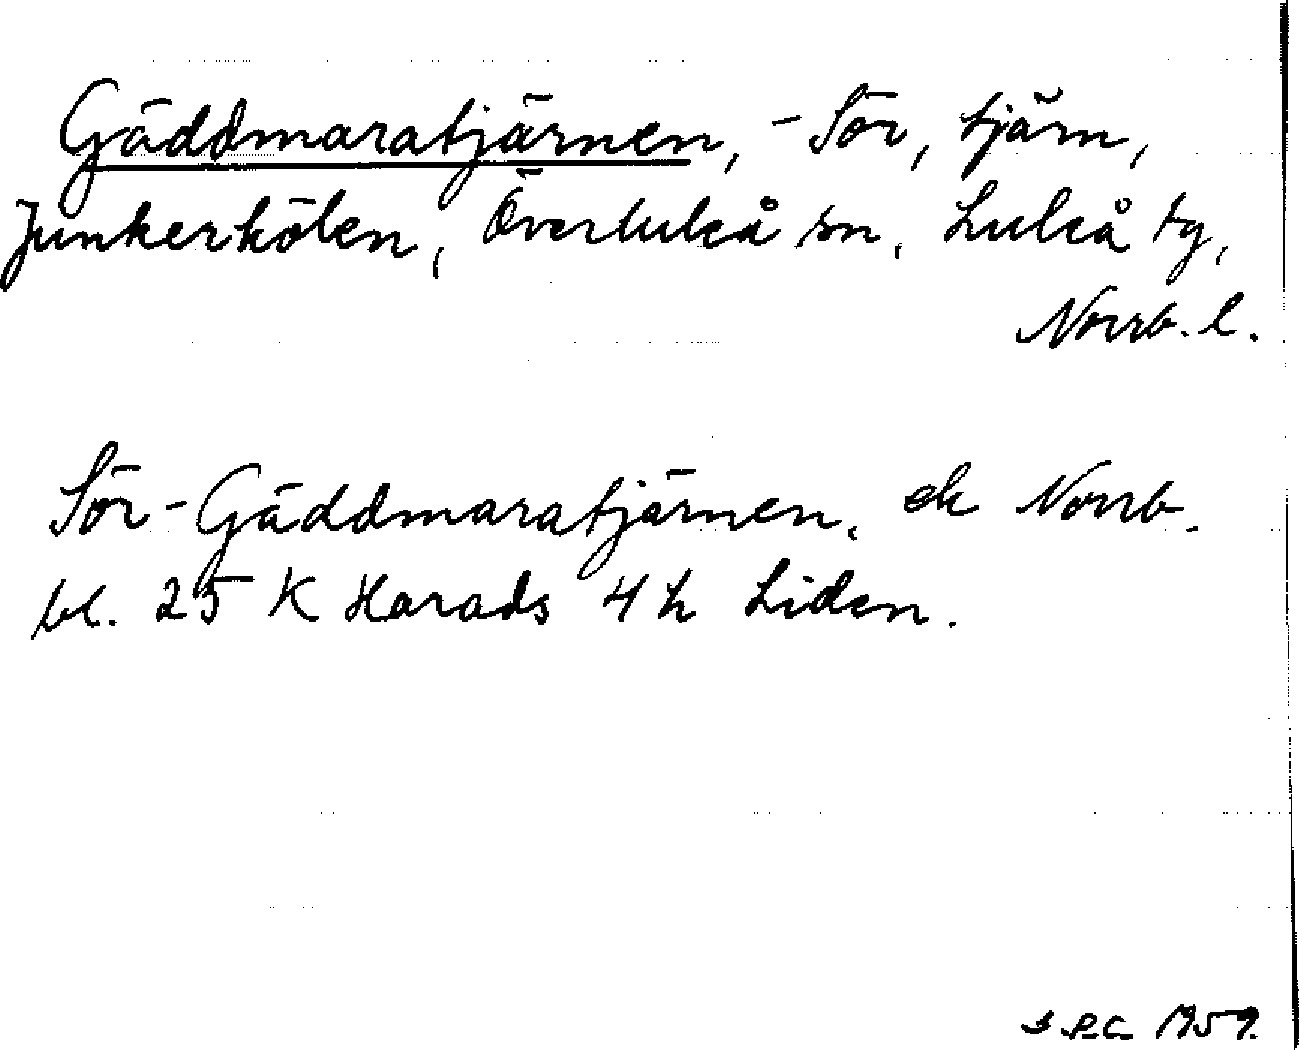 Gäddmaratjärnen, -Sör, tjärn,
Junkerkölen, Överluleå sn, Luleå tg,
Norrb. l.
Sör-Gäddmaratjärnen, ek Norrb.
bl. 25 K Harads 4 h Liden.
1959.